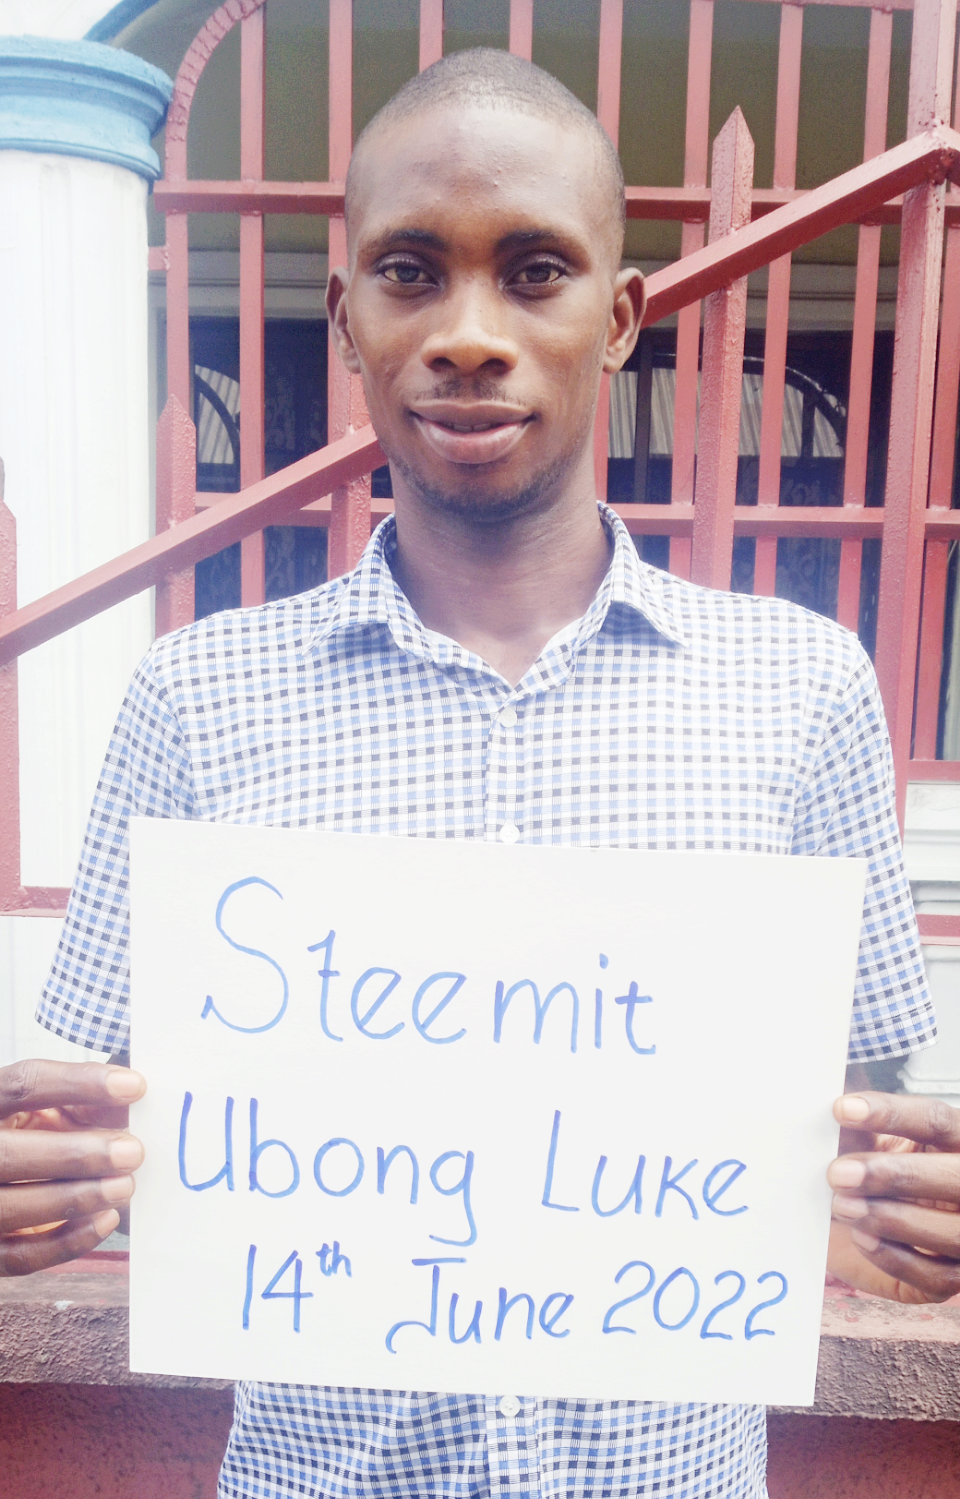 Steemit
Ubong Luke
14th June 2022